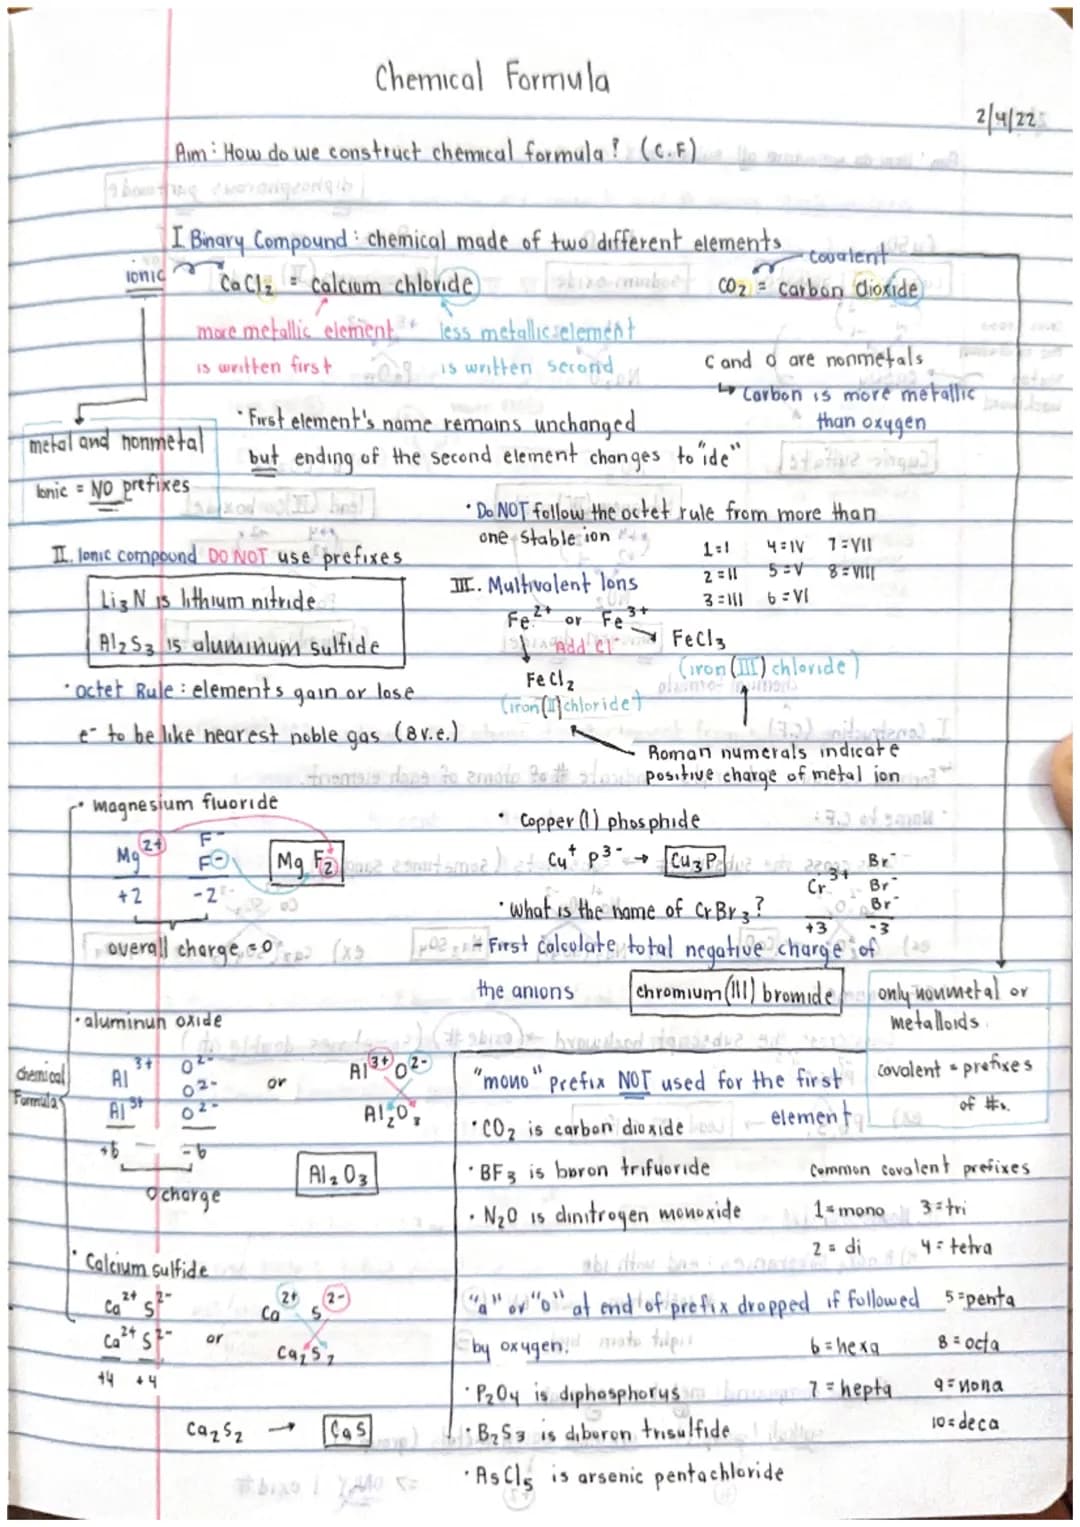 Chemical Formula
2/4/22
Aim: How do we construct chemical formula? (C.F)
I Binary Compound: chemical made of two different elements
ionic
CaCl₂ = Calcium chloride
Covalent
CO₂ = Carbon dioxide
more metallic element
is written first
less metallic element
is written second
C and O are nonmetals
↳ Carbon is more metallic
than oxygen
• First element's name remains unchanged
but ending of the second element changes to "ide"
metal and nonmetal
Ionic = NO prefixes
• Do NOT follow the octet rule from more than
one stable ion
1=I 4=IV 7=VII
2=II 5=V 8=VIII
3=III 6=VI
II. Ionic compound DO NOT use prefixes
Li₃N is lithium nitride
Al₂S₃ is aluminum sulfide
• octet Rule: elements gain or lose
e⁻ to be like nearest noble gas (8 v.e.)
III. Multivalent Ions
Fe²⁺ or Fe³⁺
Add Cl⁻
FeCl₃
(iron(III) chloride)
FeCl₂
(iron(II) chloride)
Roman numerals indicate
positive charge of metal ion
• Magnesium fluoride
Mg²⁺ F⁻
F⁻
+2 -2
Mg F₂
overall charge = 0
• Copper (I) phosphide
Cu⁺ P³⁻ → Cu₃P
• What is the name of CrBr₃?
Cr³⁺ Br⁻
Br⁻
Br⁻
+3 -3
- First calculate total negative charge of
the anions
chromium (III) bromide
only nonmetal or
metalloids
covalent = prefixes
of #s.
• aluminun oxide
chemical
Formulas
Al³⁺ O²⁻
O²⁻
Al³⁺ O²⁻
+6 -6
0 charge
or
Al³⁺ O²⁻
Al₂O₃
Al₂O₃
"mono" prefix NOT used for the first
element
• CO₂ is carbon dioxide
• BF₃ is boron trifuoride
• N₂O is dinitrogen monoxide
Common covalent prefixes
1=mono 3=tri
2=di 4=tetra
5=penta
6=hexa 8=octa
7=hepta 9=nona
10=deca
"a" or "o" at end of prefix dropped if followed
by oxygen.
• P₂O₄ is diphosphorus
• B₂S₃ is diboron trisulfide
• AsCl₅ is arsenic pentachloride
• Calcium sulfide
Ca²⁺ S²⁻
Ca²⁺ S²⁻
+4 +4
or
Ca²⁺ S²⁻
Ca₂S₂
Ca₂S₂ → CaS